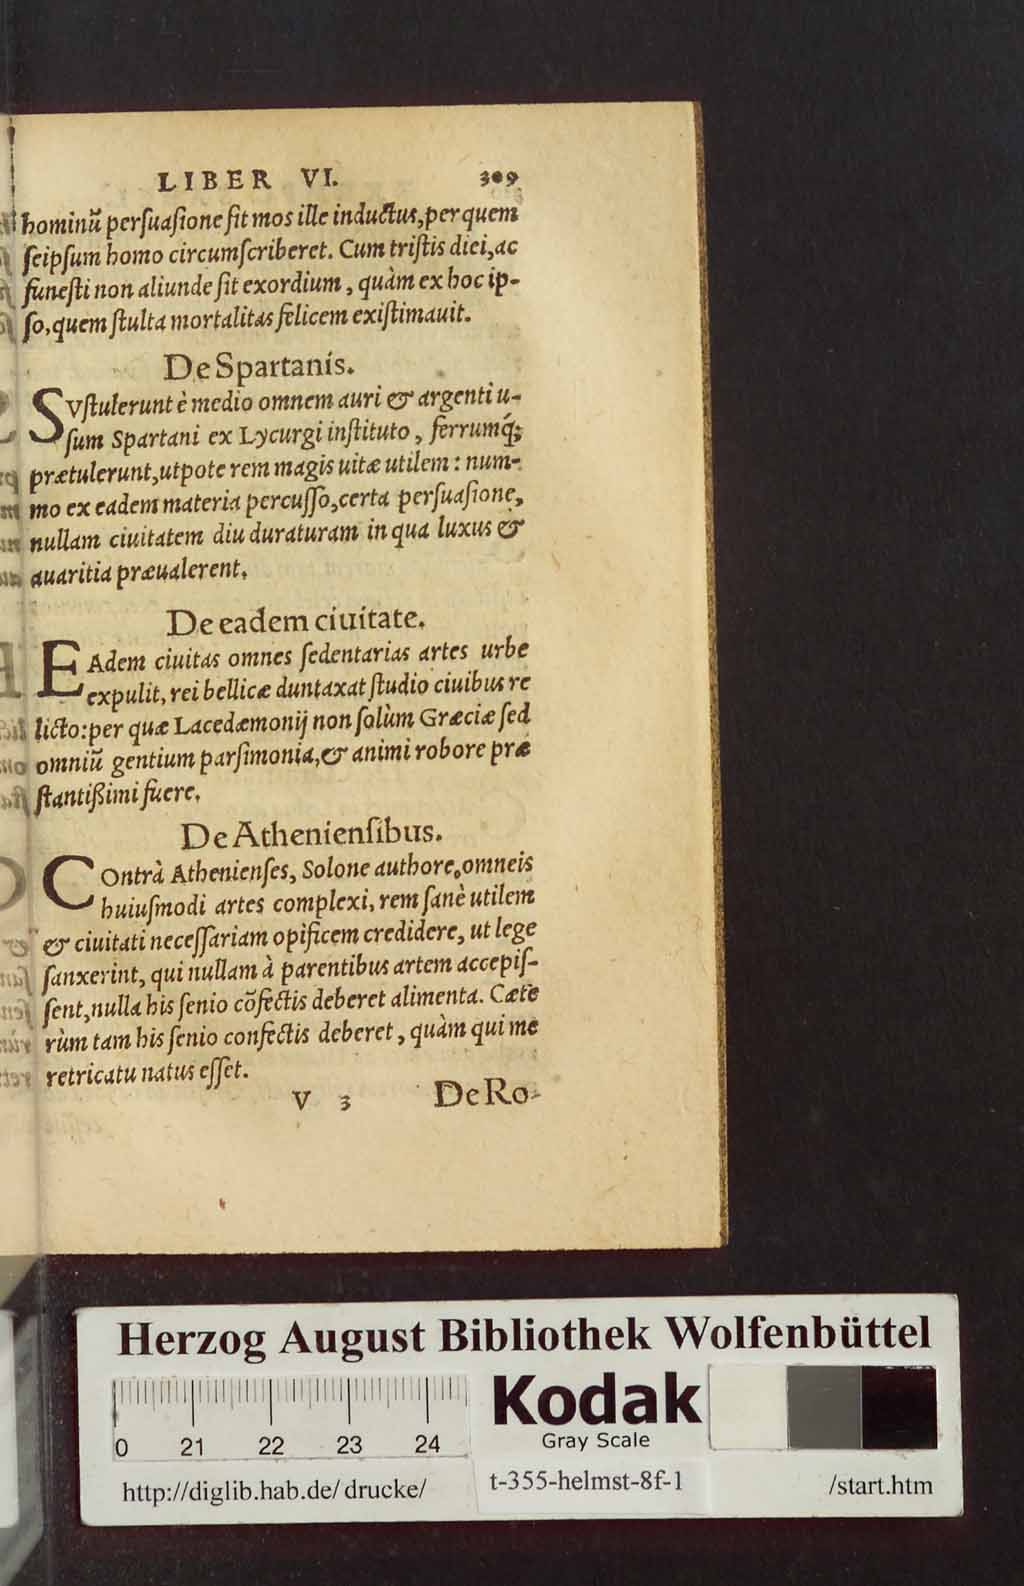 LIBER VI. 309
hominũ perſuaſione ſit mos ille inductus, per quem
ſeipſum homo circumſcriberet. Cum triſtis diei, ac
funeſti non aliunde ſit exordium, quàm ex hoc ip-
ſo, quem ſtulta mortalitas felicem exiſtimauit.
De Spartanis.
SVſtulerunt è medio omnem auri & argenti u-
ſum Spartani ex Lycurgi inſtituto, ferrumq́;
prætulerunt, utpote rem magis uitæ utilem: num-
mo ex eadem materia percuſſo, certa perſuaſione,
nullam ciuitatem diu duraturam in qua luxus &
auaritia præualerent.
De eadem ciuitate.
EAdem ciuitas omnes ſedentarias artes urbe
expulit, rei bellicæ duntaxat ſtudio ciuibus re
licto: per quæ Lacedæmonij non ſolùm Græciæ ſed
omniũ gentium parſimonia, & animi robore præ
ſtantißimi fuere.
De Athenienſibus.
COntrà Athenienſes, Solone authore, omneis
huiuſmodi artes complexi, rem ſanè utilem
& ciuitati neceſſariam opificem credidere, ut lege
ſanxerint, qui nullam à parentibus artem accepiſ-
ſent, nulla his ſenio cõfectis deberet alimenta. Cæte
rùm tam his ſenio confectis deberet, quàm qui me
retricatu natus eſſet.
V 3 De Ro-
Herzog August Bibliothek Wolfenbüttel
0 21 22 23 24
Kodak
Gray Scale
http://diglib.hab.de/drucke/ t-355-helmst-8f-1 /start.htm